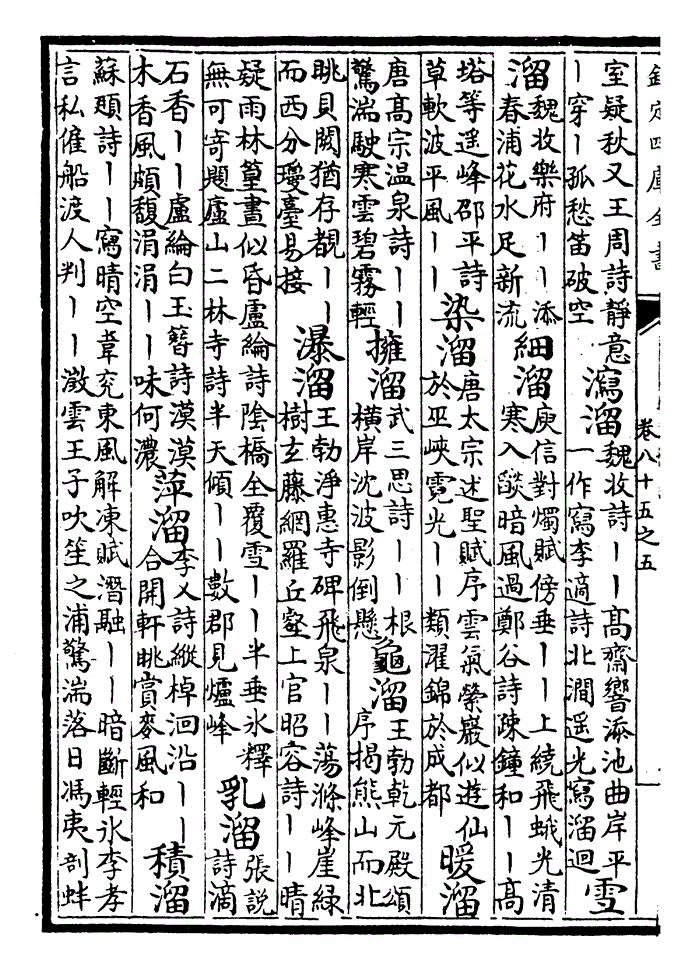 欽定四庫全書
卷八十五之五
室疑秋又王周詩靜意
丨穿丨孤愁笛破空
瀉溜
魏收詩丨丨高齋響添池曲岸平
一作寫李適詩北澗遥光寫溜迴
雪
溜
魏收樂府丨丨添
春浦花水足新流
細溜
庾信對燭賦傍垂丨丨上繞飛蛾光清
寒入燄暗風過鄭谷詩疎鐘和丨丨高
塔等遥峰邵平詩
草軟波平風丨丨
染溜
唐太宗述聖賦序雲氣縈巖似遊仙
於巫峽霓光丨丨類濯錦於成都
暖溜
唐高宗温泉詩丨丨
驚湍駛寒雲碧霧輕
擁溜
武三思詩丨丨丨根
橫岸沈波影倒懸
龜溜
王勃乾元殿頌
序揭熊山而北
眺貝闕猶存覩丨丨
而西分瓊臺易接
瀑溜
王勃淨惠寺碑飛泉丨丨蕩滌峰崖緑
樹玄藤網羅丘壑上官昭容詩丨丨晴
疑雨林篁晝似昏盧綸詩陰橋全覆雪丨丨半垂氷釋
無可寄題廬山二林寺詩半天傾丨丨數郡見爐峰
乳溜
張說
詩滴
石香丨丨盧綸白玉簪詩漠漠
木香風頗馥涓涓丨丨味何濃
萍溜
李乂詩縱棹洄沿丨丨
合開軒眺賞麥風和
積溜
蘇頲詩丨丨寫晴空韋充東風解凍賦潛融丨丨暗斷輕氷李孝
言私僱船渡人判丨丨澂雲王子吹笙之浦驚湍落日馮夷剖蚌